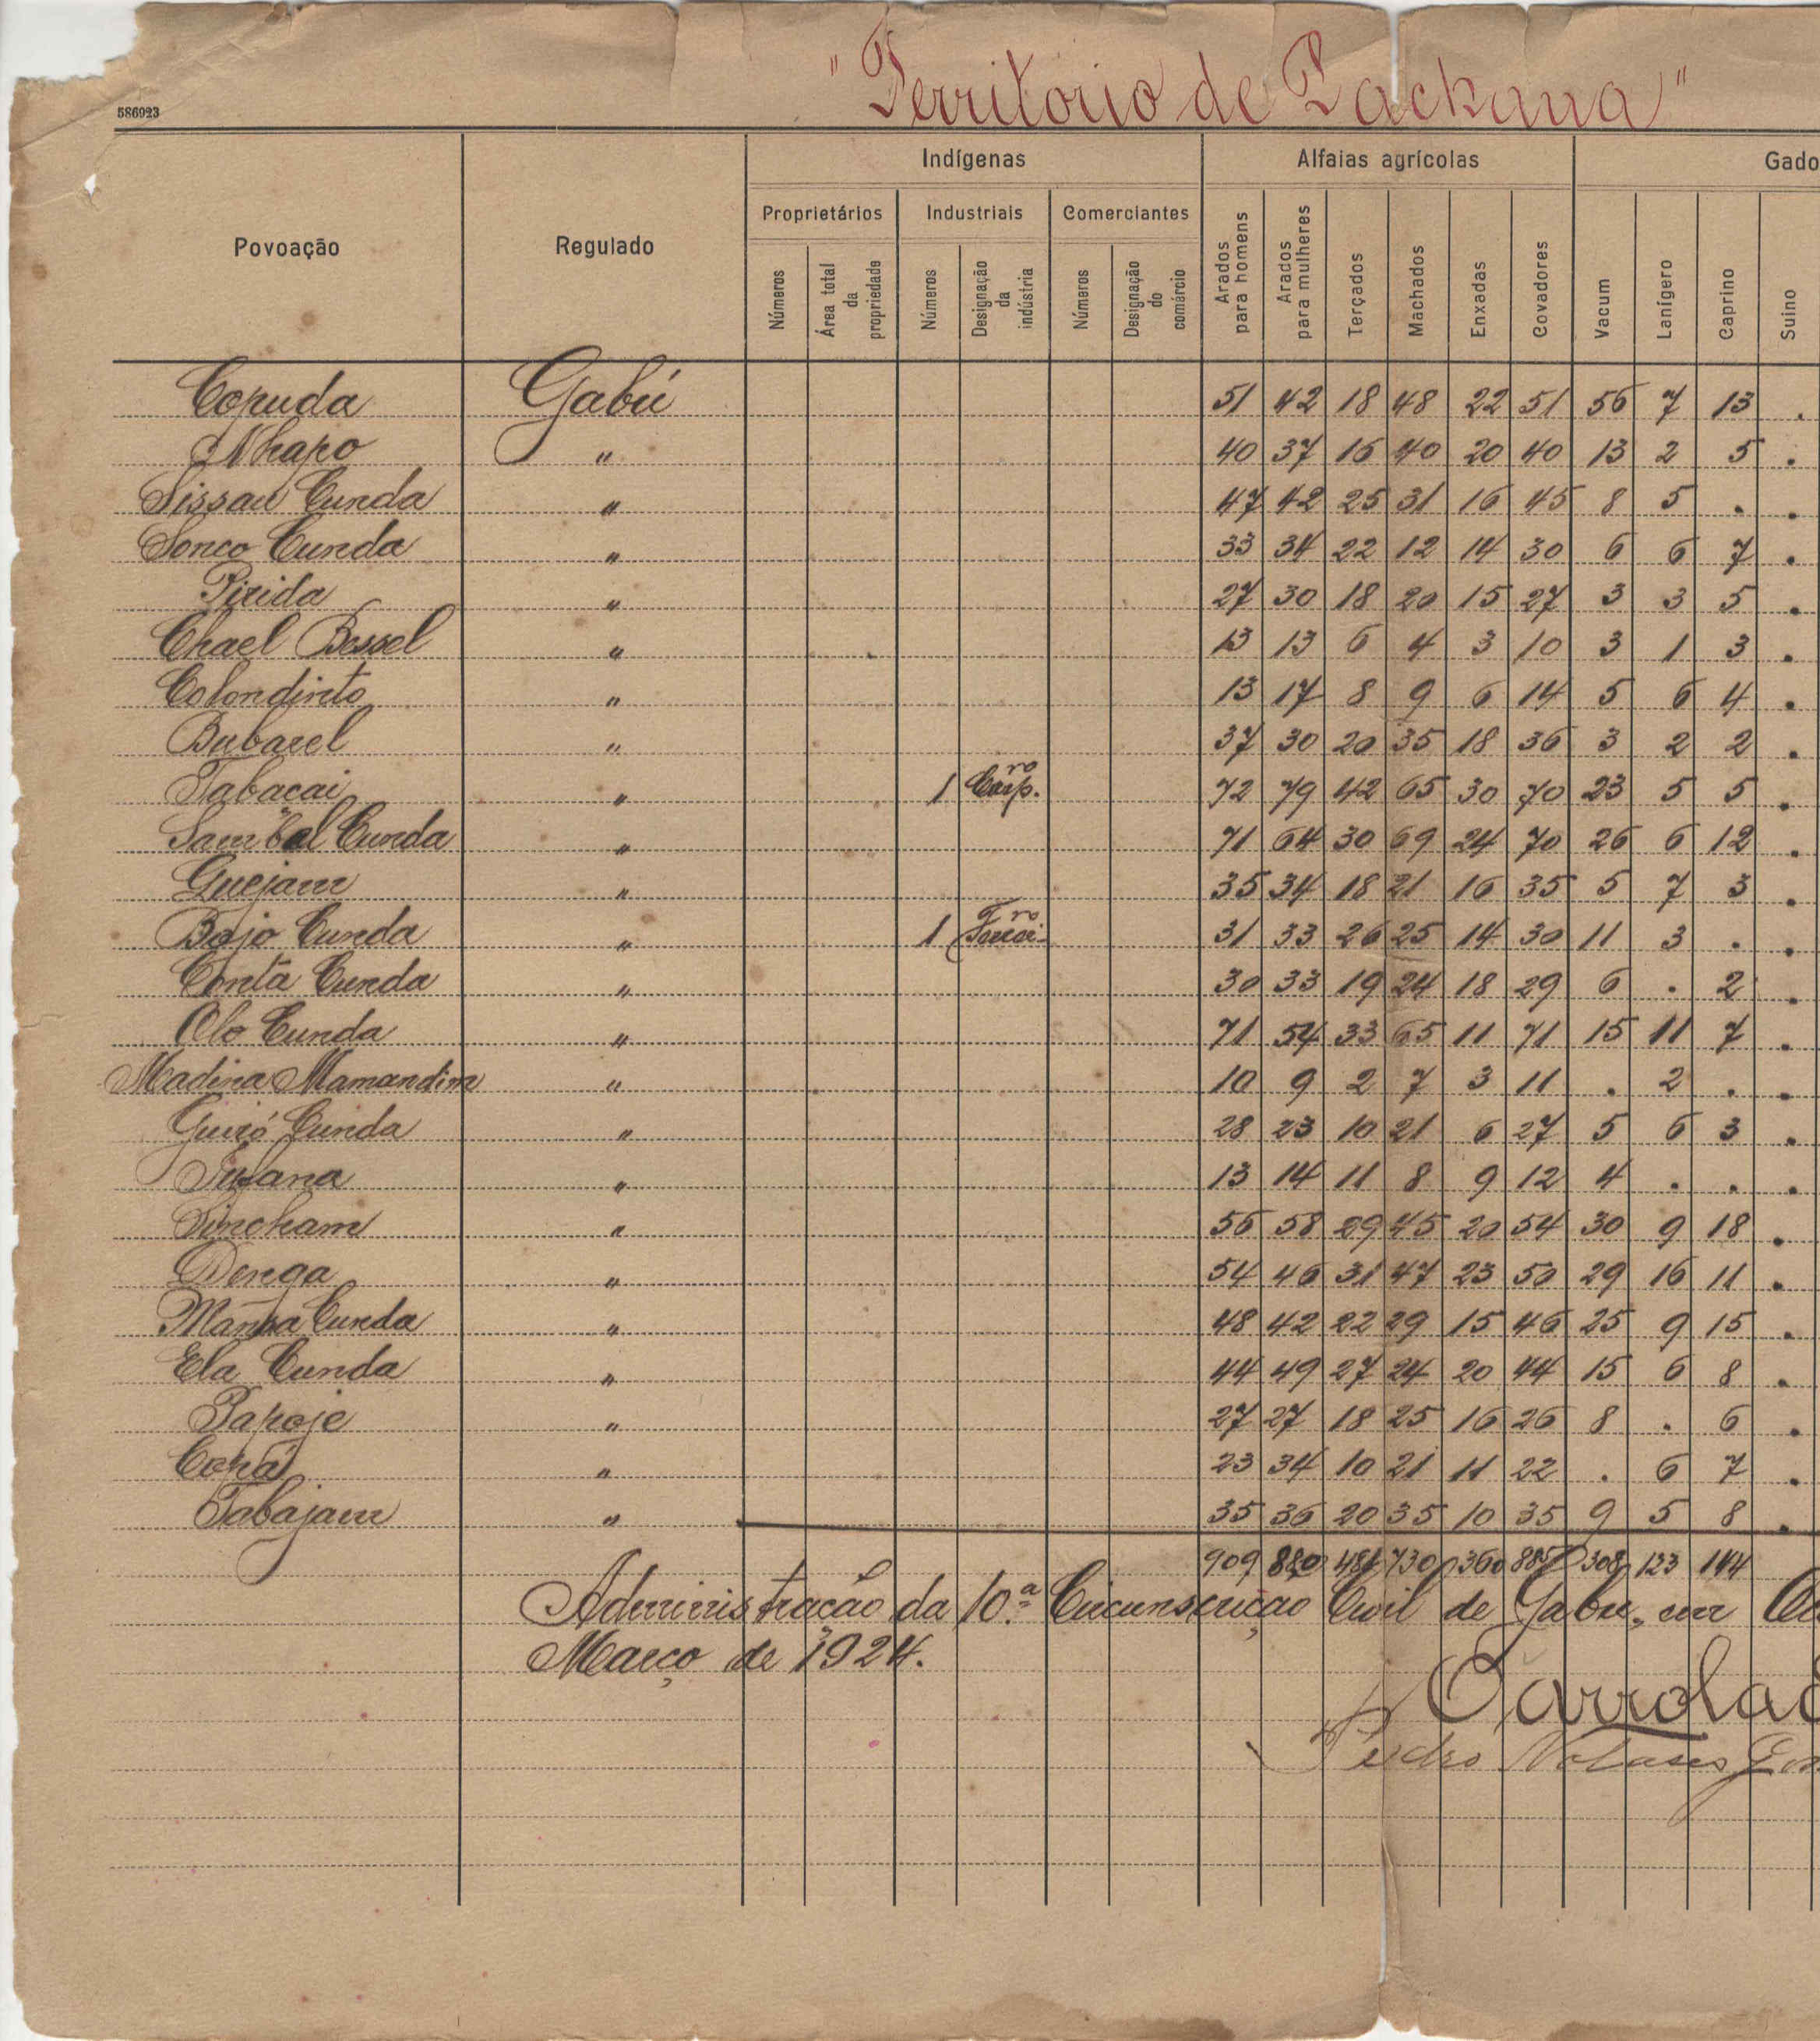 "Territorio de Packana"
586923
Indígenas Alfaias agrícolas Gado
Povoação Regulado Proprietários Industriais Comerciantes Arados para homens Arados para mulheres Terçados Machados Enxadas Covadores Vacum Lanígero Caprino Suino
Números Área total da propriedade Números Designação da indústria Números Designação do comércio
Copuda Gabú 51 42 18 48 22 51 56 7 13 .
Nhapo " 40 37 16 40 20 40 13 2 5 .
Sissau Cunda " 47 42 25 31 16 45 8 5 . .
Sonco Cunda " 33 34 22 12 14 30 6 6 7 .
Pirida " 27 30 18 20 15 27 3 3 5 .
Chael Bessel " 13 13 6 4 3 10 3 1 3 .
Colondinto " 13 17 8 9 6 14 5 6 4 .
Bubarel " 37 30 20 35 18 36 3 2 2 .
Tabacai " 1 Carp.ro 72 79 42 65 30 70 23 5 5 .
Sambel Cunda " 71 64 30 69 24 70 26 6 12 .
Guejam " 35 34 18 21 16 35 5 7 3 .
Bajo Cunda " 1 Ferrei-ro 31 33 26 25 14 30 11 3 . .
Contá Cunda " 30 33 19 24 18 29 6 . 2 .
Olo Cunda " 71 54 33 65 11 71 15 11 7 .
Madina Mamandim " 10 9 2 7 3 11 . 2 . .
Guiró Cunda " 28 23 10 21 6 27 5 6 3 .
" 13 14 11 8 9 12 4 . . .
Sincham " 56 58 29 45 20 54 30 9 18 .
Denga " 54 46 31 47 23 50 29 16 11 .
Mansa Cunda " 48 42 22 29 15 46 25 9 15 .
Ela Cunda " 44 49 27 24 20 44 15 6 8 .
Papoje " 27 27 18 25 16 26 8 . 6 .
Copá " 23 34 10 21 11 22 . 6 7 .
Tabajam " 35 36 20 35 10 35 9 5 8 .
909 880 481 730 360 885 308 123 144
Administração da 10.ª Circunscrição Civil de Gabu, em
Março de 1924.
O arrolad
Pedro